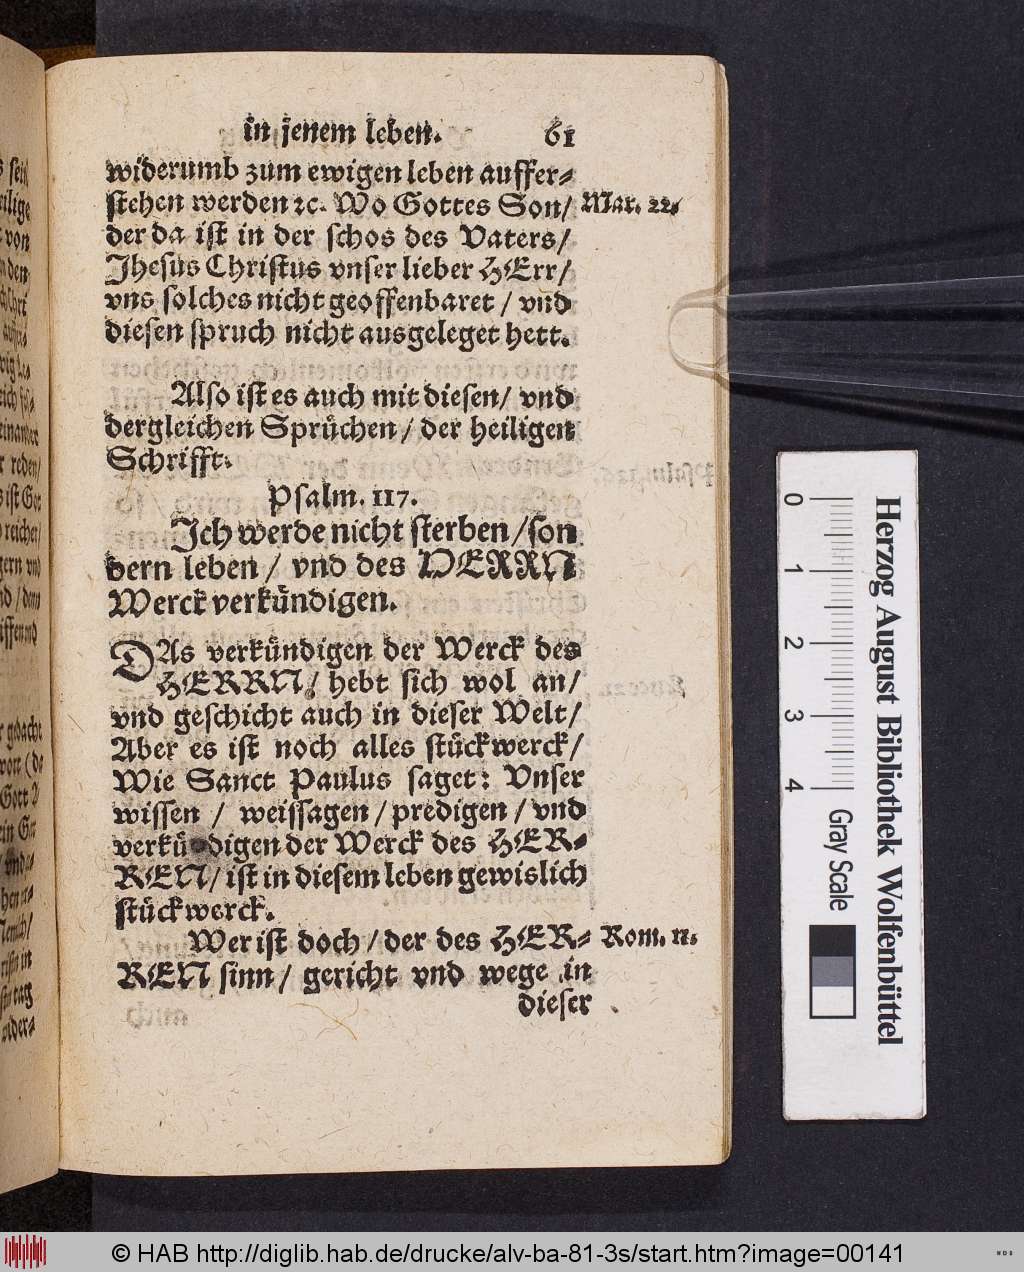 in jenem leben. 61
widerumb zum ewigen leben auffer-
stehen werden ꝛc. Wo Gottes Son/ Mar. 22.
der da ist in der schos des Vaters/
Jhesus Christus vnser lieber HErr/
vns solches nicht geoffenbaret / vnd
diesen spruch nicht ausgeleget hett.
Also ist es auch mit diesen/ vnd
dergleichen Sprüchen / der heiligen
Schrifft.
Psalm. 117.
Ich werde nicht sterben / son
dern leben / vnd des HERRN
Werck verkündigen.
DAs verkündigen der Werck des
HERRN / hebt sich wol an/
vnd geschicht auch in dieser Welt/
Aber es ist noch alles stückwerck/
Wie Sanct Paulus saget: Vnser
wissen / weissagen / predigen / vnd
verkündigen der Werck des HER-
REN/ ist in diesem leben gewislich
stückwerck.
Wer ist doch / der des HER- Rom. 11.
REN sinn / gericht vnd wege in
dieser
Herzog August Bibliothek Wolfenbüttel
0 1 2 3 4 Gray Scale
© HAB http://diglib.hab.de/drucke/alv-ba-81-3s/start.htm?image=00141